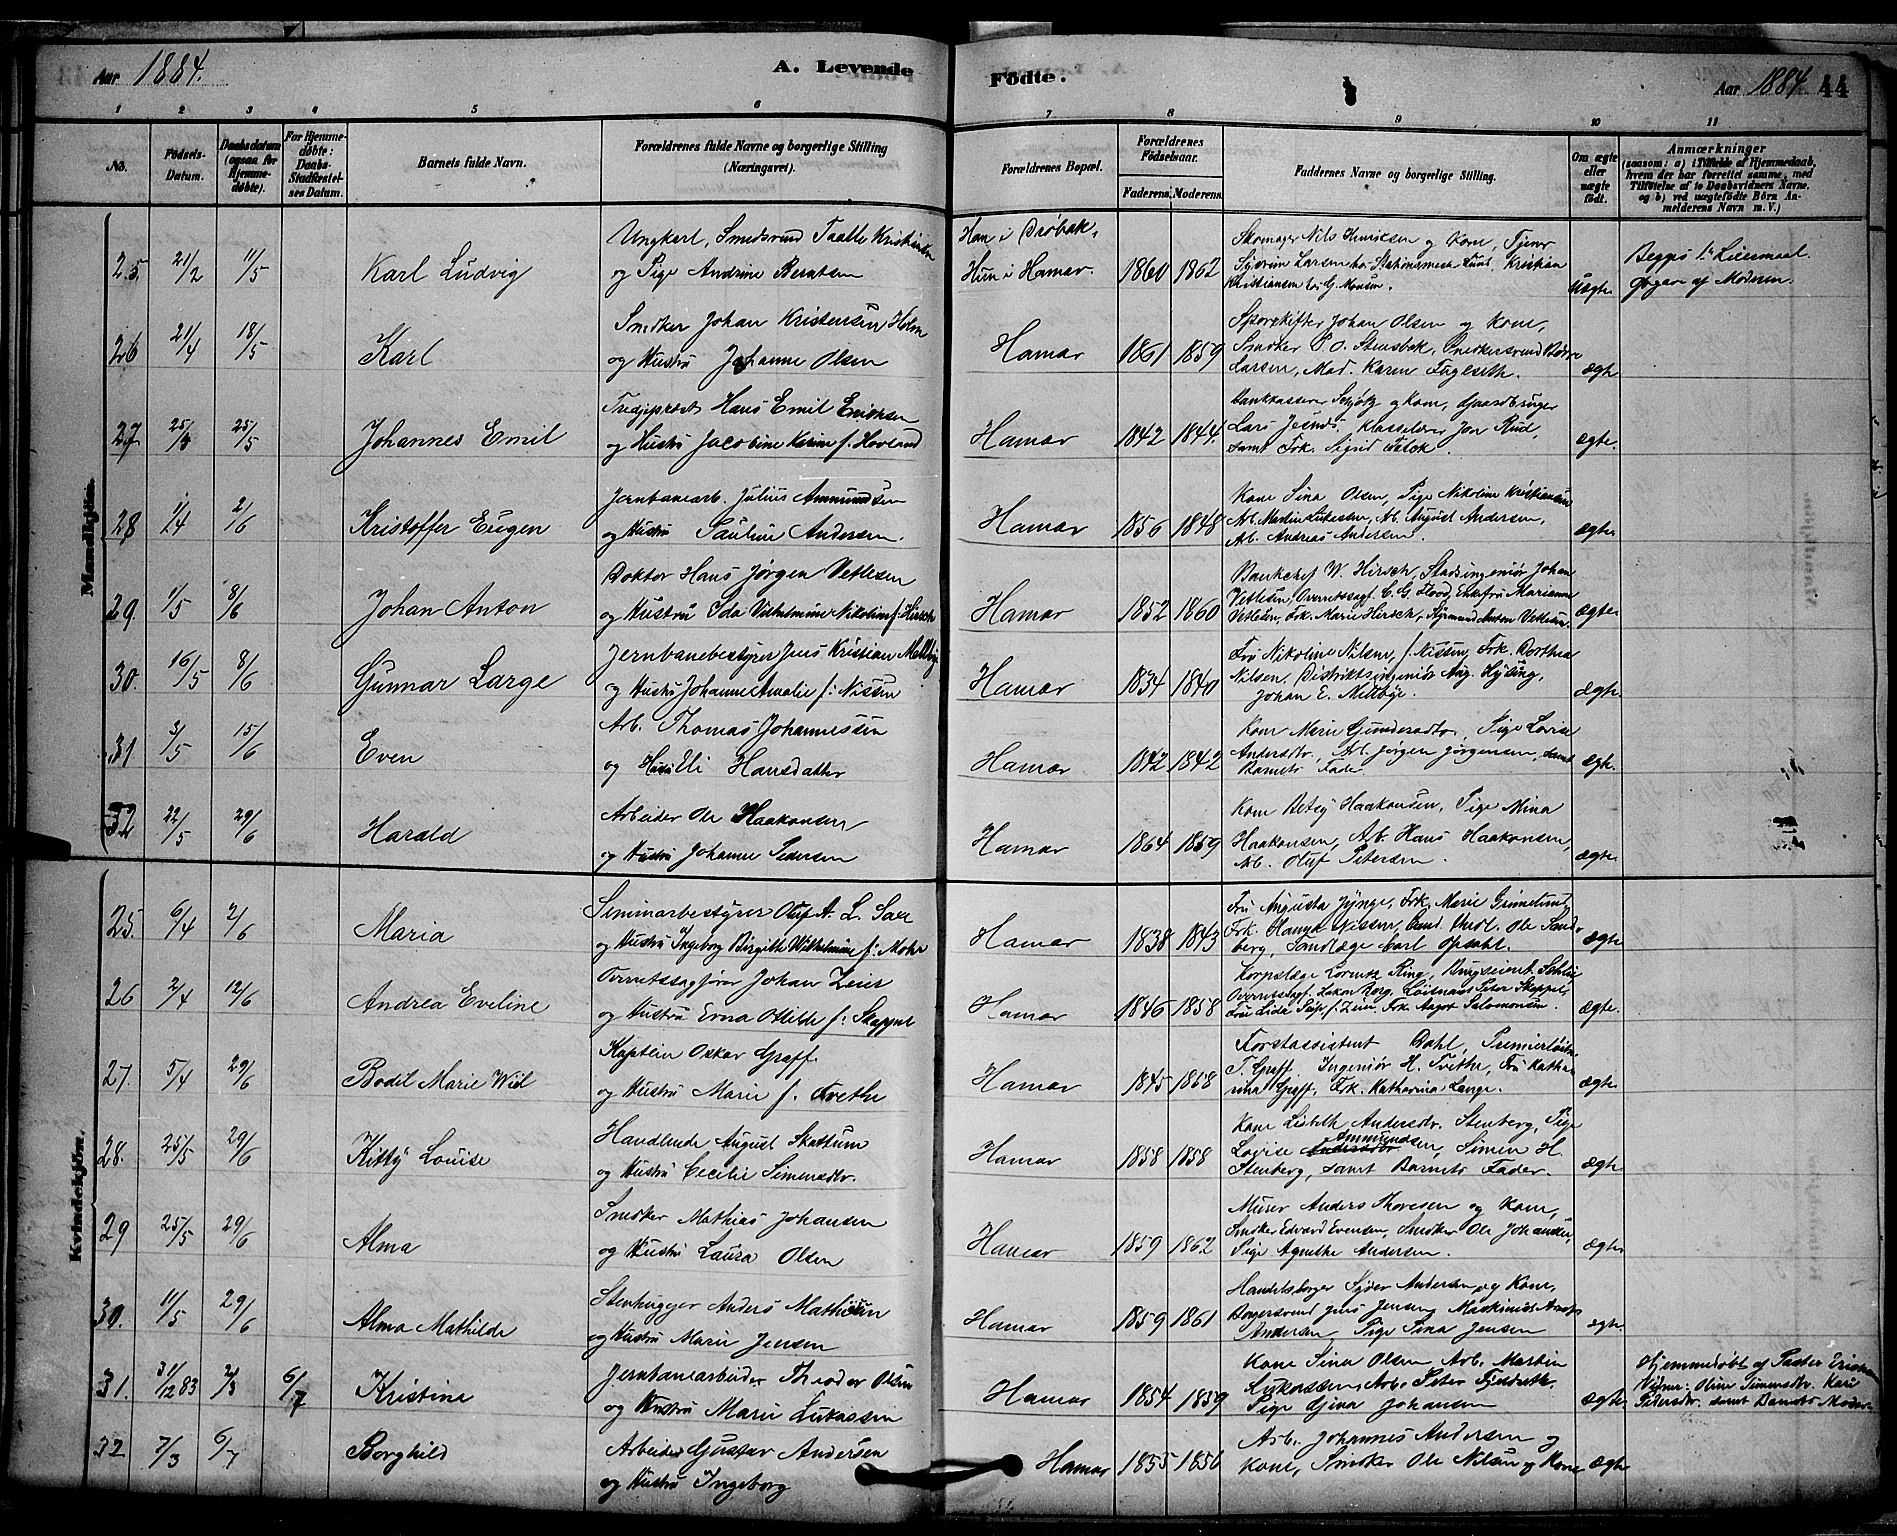 Aar 1884.
A. Levende
Födte.
Aar 1884 44
1 2 3 4 5 6 7 8 9 10 11
No.
Födsels-Datum.
Daabsdatum (ogsaa for Hjemme-döbte).
For Hjemme-döbte: Daabs-Stadfæstel-ses Datum.
Barnets fulde Navn.
Forældrenes fulde Navne og borgerlige Stilling (Næringsvei).
Forældrenes Bopæl.
Forældrenes Födselsaar.
Faderens. Moderens.
Faddernes Navne og borgerlige Stilling.
Om ægte eller uægte födt.
Anmærkninger
(saasom: a) i Tilfælde af Hjemmedaab, hvem der har forrettet samme, med Tilföielse af to Daabsvidners Navne, og b) ved uægtefödte Börn An-melderens Navn m. V.)
Mandkjön.
25. 21/2 11/5 Karl Ludvig
Ungkarl, Smedsvend
og Pige Andrine Berntsen
Han i Dröbak,
Hun i Hamar. 1860 1862
Skomager Nils Henriksen og Kone, Tjener
Larsen hos Stationsmester Kristian
Kristiansen hos G. Monsen.
Uægte
Begges 1ste Leiermaal.
Opgave af Moderen.
26 21/4 18/5 Karl
Snedker Johan Kristensen Holm
og Hustru Johanne Olsen
Hamar 1861 1859
Sporskifter Johan Olsen og Kone,
Snedker P. O. Stensbak, Snedkersvend
Larsen, Mad. Karen Fugleseth.
ægte
27 25/5 Johannes Emil
Tredjeprest Hans Emil Erichsen
og Hustru Jacobine Karine f. Hovland
Hamar 1842 1844
Bankkasserer Schjøtz og Kone, Gaardbruger
Lars Jesnes, Klasselærer Jon Rud,
samt Frk. Sigrid
ægte.
28 1/4 2/6 Kristoffer Eugen
Jernbanearb. Julius Ammundsen
og Hustru Pauline Andersen.
Hamar 1856 1848
Kone Sina Olsen, Pige Nikoline Kristiansen
Arb. Martin Lukassen, Arb. August Andersen,
Arb. Andreas Andersen.
ægte
29. 1/5 8/6 Johan Anton
Doktor Hans Jørgen Vetlesen
og Hustru Ida Vilhelmine Nikoline f. Hirsch
Hamar 1852 1860
Bankchef W. Hirsch, Stadsingeniör Johan
Vetlesen, Overretssagf. C. G. Flood, Enkefru Marianne
Vetlesen, Frk. Marie Hirsch, Styrmand Anton Vetlesen.
ægte
30. 16/5 8/6 Gunnar Large
Jernbanebestyrer Jens Kristian
og Hustru Johanne Amalie f: Nissen
Hamar 1834 1840
Fru Nikoline Nilsen, f. Nissen, Frk Dorthea
Nilsen, Distriktsingeniör Aug. Hysing,
Johan E. Mellbye.
ægte
31 3/5 15/6 Even
Arb. Thomas Johannessen
og Hustru Eli Hansdatter
Hamar 1842 1842
Kone Marie Gundersdtr, Pige Lovise
Andersdtr. Arb. Jørgen Jørgensen, samt
Barnets Fader
ægte.
32 22/5 29/6 Harald
Arbeider Ole Haakonsen
og Hustru Johanne Pedersen
Hamar 1864 1859
Kone Betsy Haakonsen, Pige Mina
Haakonsen, Arb. Hans Haakonsen,
Arb. Oluf Petersen.
ægte
Kvindekjön.
25. 6/4 2/6 Maria
Seminarbestyrer Oluf A. L.
og Hustru Ingeborg Birgitte Wilhelmine f: Mohr
Hamar 1838 1843
Fru Augusta Jynge, Frk. Marie Grimelund,
Frk. Hanna Nissen, Cand. theol. Ole Sand-
berg, Tandlæge Carl Opsahl.
ægte
26 2/4 12/6 Andrea Eveline
Overretssagförer Johan
og Hustru Erna Otelde f: Skappel
Hamar 1846 1858
Korpslæge Lorentz Ring,
Overretssagf. Hakon Borg, Löitnant Peter Skappel,
Fru Lida Frk. Aagot Salomonsen.
ægte
27. 5/4 29/6 Bodil Marie Wiel
Kaptein Oskar Graff.
og Hustru Marie f. Tvethe
Hamar 1845 1858
Forstassistent Dahl, Premierlöitn.
T. Graff, Ingeniör H. Tvethe, Fru Katha-
rina Graff, Frk. Katharina Lange.
ægte
28. 25/5 29/6 Kitty Louise
Handlende August Skattum
og Hustru Cecilie Simensdtr.
Hamar 1858 1858
Kone Lisbeth Andersdtr. Stenberg, Pige
Lovise Ammundsen, Simen H.
Stenberg, samt Barnets Fader.
ægte
29 25/5 29/6 Alma
Snedker Mathias Johansen
og Hustru Laura Olsen
Hamar 1859 1862
Murer Anders Thoresen og Kone,
Snedker Edvard Evensen, Snedker Ole Johansen,
Pige Agnethe Andersen.
ægte
30. 11/5 29/6 Alma Mathilde
Stenhugger Anders Mathisen
og Hustru Marie Jensen
Hamar 1859 1861
Handelsborger Syver Andersen og Kone,
Bagersvend Jens Jensen, Maskinist
Andersen, Pige Sina Jensen
ægte.
31. 31/12 83 2/3 6/7 Kristine
Jernbanearbeider Theodor Olsen
og Hustru Marie Lukassen
Hamar 1854 1859
Kone Sina Olsen, Arb. Martin
Lukassen, Arb. Peter
Pige Gina Johansen
ægte
Hjemmedöbt af Pastor Erichsen
Vidner: Oline Simensdtr. Kari
Petersdtr. samt Barnets Moder
32 7/3 6/7 Borghild
Arbeider Gustav Andersen
og Hustru Ingeborg
Hamar 1855 1856
Arb. Johannes Andersen og
Kone, Snedker Ole Nilsen og Kone
ægte